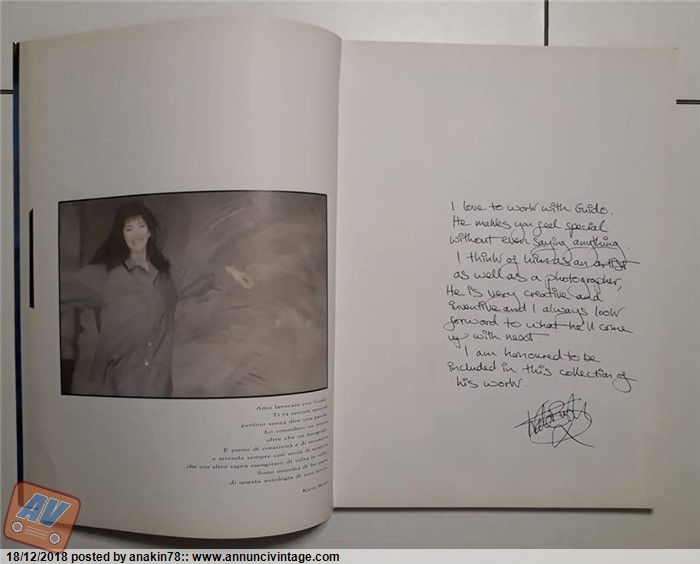 Amo lavorare con Guido.
Ti fa sentire speciale
perfino senza dire una parola.
Lo considero un artista
oltre che un fotografo.
È pieno di creatività e di inventiva
e attendo sempre con ansia di scoprire
che cos'altro saprà escogitare di volta in volta.
Sono onorata di far parte
di questa antologia di suoi lavori.
Kate Bush
I love to work with Guido.
He makes you feel special
without even saying anything.
I think of him as an artist
as well as a photographer,
He is very creative and
inventive and I always look
forward to what he'll come
up with next.
I am honoured to be
included in this collection of
his work.
Kate Bush
AV
18/12/2018 posted by anakin78:: www.annuncivintage.com